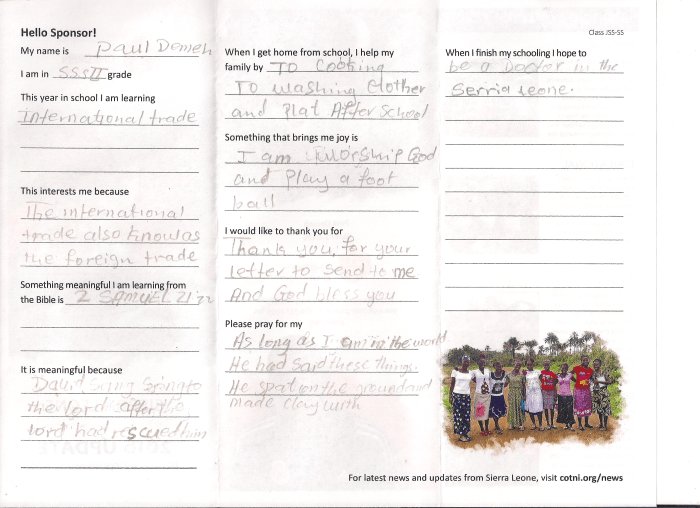 Hello Sponsor!
My name is Paul Domeh
I am in SSSII grade
This year in school I am learning
International trade
This interests me because
The international
trade also know as
the foreign trade
Something meaningful I am learning from
the Bible is 2 SAMUEL 21:22
It is meaningful because
David Sang Song to
the lord after the
lord had rescued him
When I get home from school, I help my
family by TO Cooking
To washing Clother
and Plat After School
Something that brings me joy is
I am Worship God
and Play a foot
ball
I would like to thank you for
Thank you, for your
letter to send to me
And God bless you
Please pray for my
As long as I am in the world
He had Said these things.
He spat on the ground and
made clay with
Class JSS-SS
When I finish my schooling I hope to
be a Doctor in the
Serria leone.
For latest news and updates from Sierra Leone, visit cotni.org/news